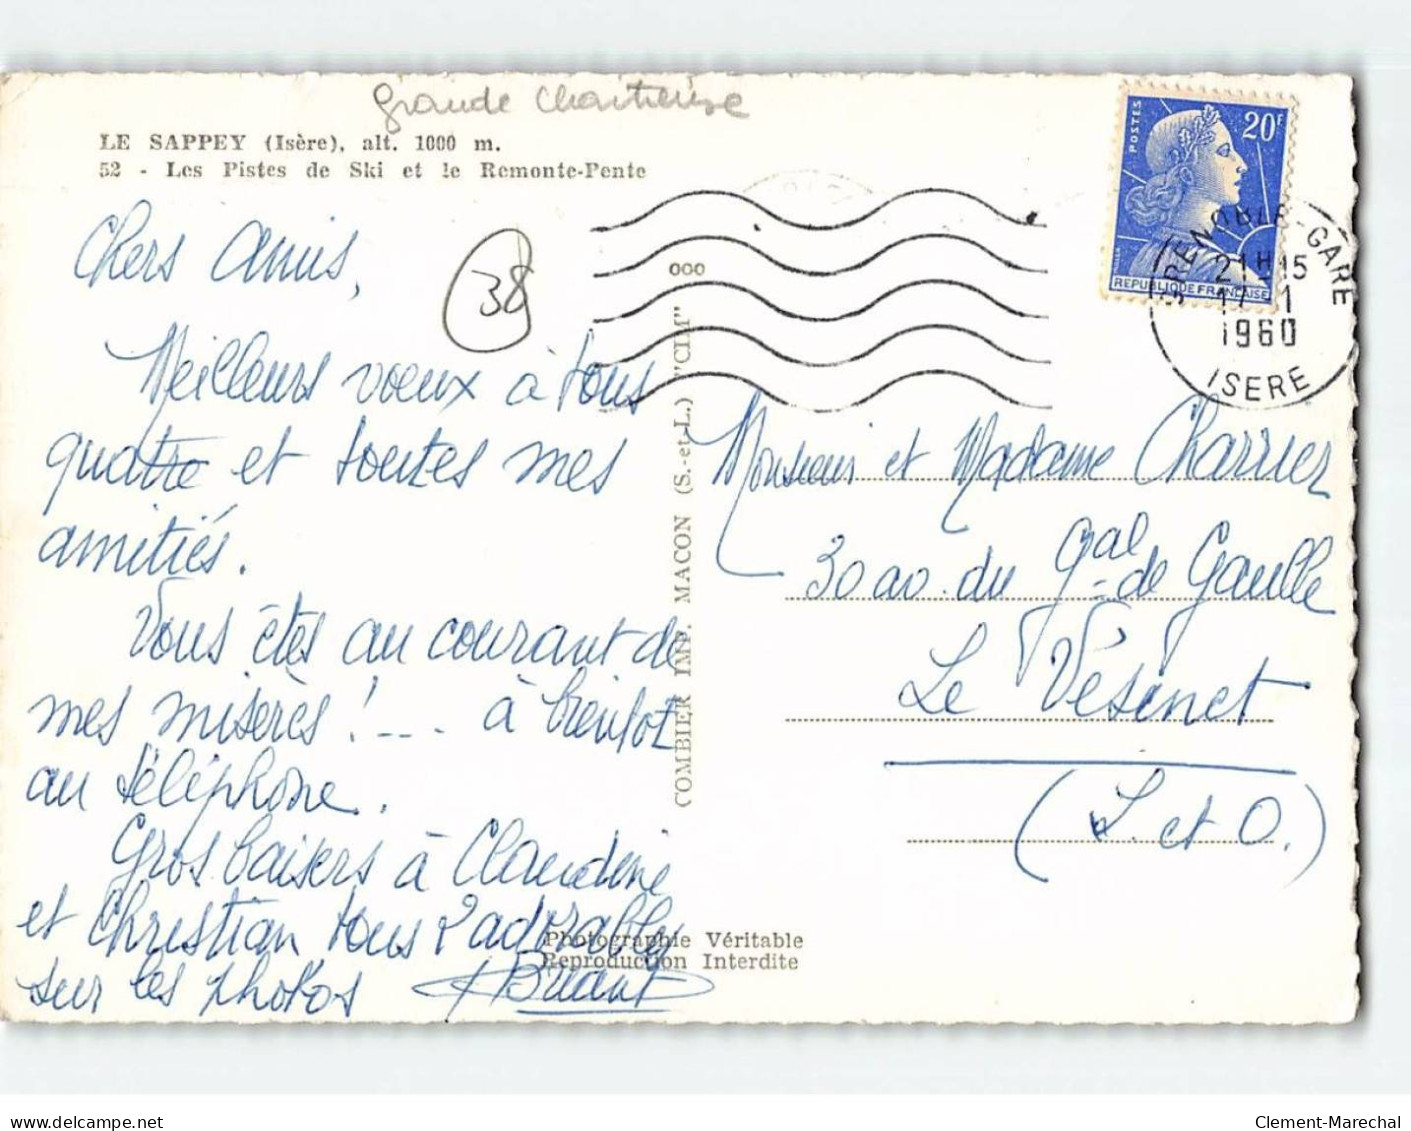 Grande Chartreuse
LE SAPPEY (Isère), alt. 1000 m.
52 - Les Pistes de Ski et le Remonte-Pente
POSTES
20F
REPUBLIQUE FRANÇAISE
GRENOBLE-GARE
21H15
17-1
1960
ISERE
38
Chers Amis,
Meilleurs voeux à tous
quatre et toutes mes
amitiés.
Vous êtes au courant de
mes misères !... à bientôt
au téléphone.
Gros baisers à Claudine
et Christian tous 2 adorables
sur les photos
COMBIER IMP. MACON (S.-et-L.) "CIM"
Monsieur et Madame Charrier
30 av. du Gal de Gaulle
Le Vésinet
(S. et O.)
Photographie Véritable
Reproduction Interdite
delcampe.net
Clement-Marechal